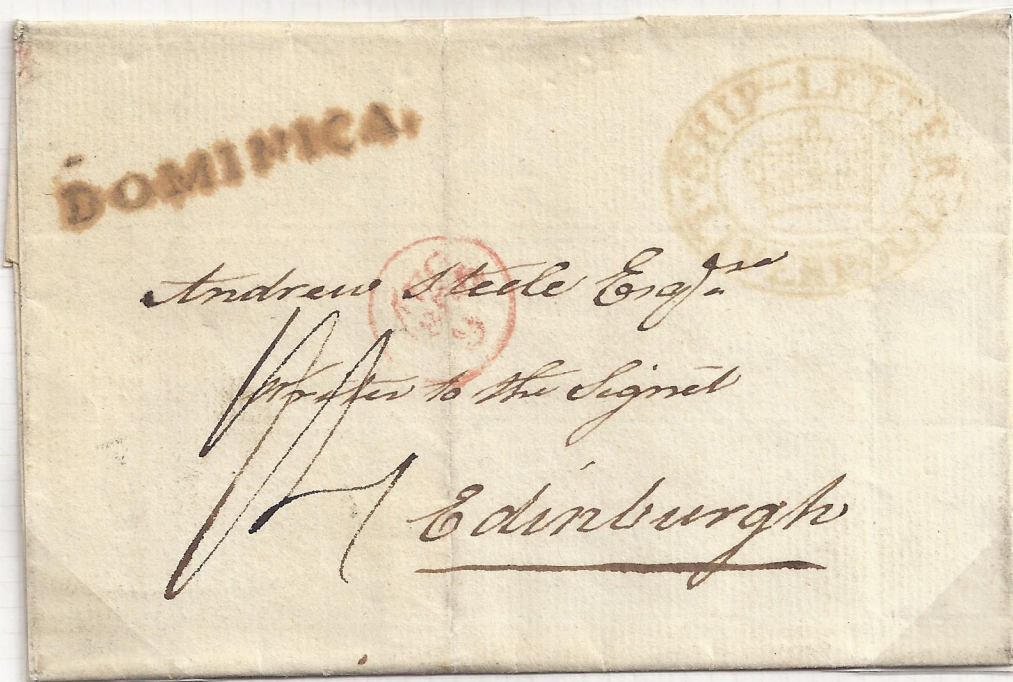 DOMINICA.
SHIP-LETTER
Andrew Steele Esqr
Writer to the Signet
Edinburgh